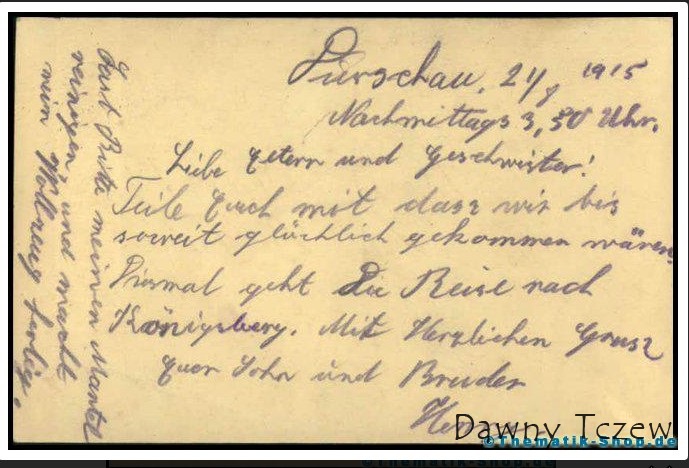 Dirschau, 21/8 1915
Nachmittags 3,50 Uhr.
Liebe Eltern und Geschwister!
Teile Euch mit dass wir bis
soweit glücklich gekommen wären
Diesmal geht Die Reise nach
Königsberg. Mit Herzlichen Gruss
Euer Sohn und Bruder
Bitte meinen Mantel
reinigen und macht
mein fertig.
Dawny Tczew
©Thematik-Shop.de
©Thematik-Shop.de